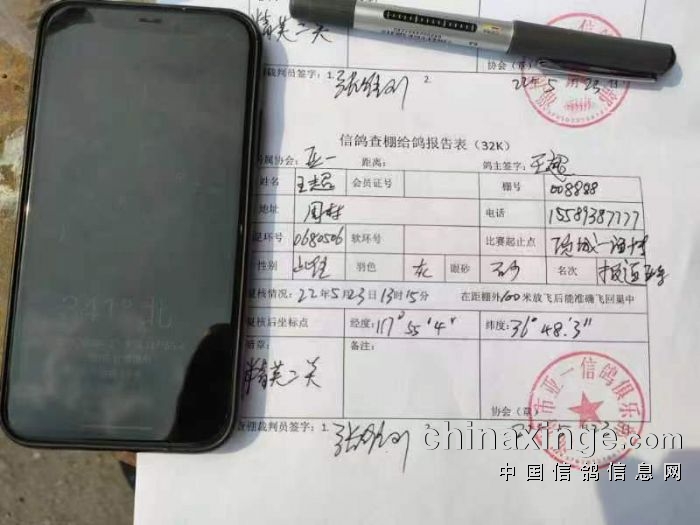 精英二关
裁判员签字: 1. 2
协会(章)
22年5月23日
信鸽查棚给鸽报告表(32K)
属协会: 亚一 距离: 鸽主签字:
姓名 会员证号 棚号 008888
地址 周村 电话 15589387777
足环号 0680506 软环号 比赛起止点
性别 雄 羽色 灰 眼砂 名次
复核情况: 22年5月23日13时15分 在距棚外100米放飞后能准确飞回巢中
复核后坐标点 经度: 117° 55'4" 纬度: 36° 48.3"
备注:
精英二关
协会(章)
市亚一信鸽俱乐部
查棚裁判员签字: 1. 2
341° 北
chinaxinge.com
中国信鸽信息网